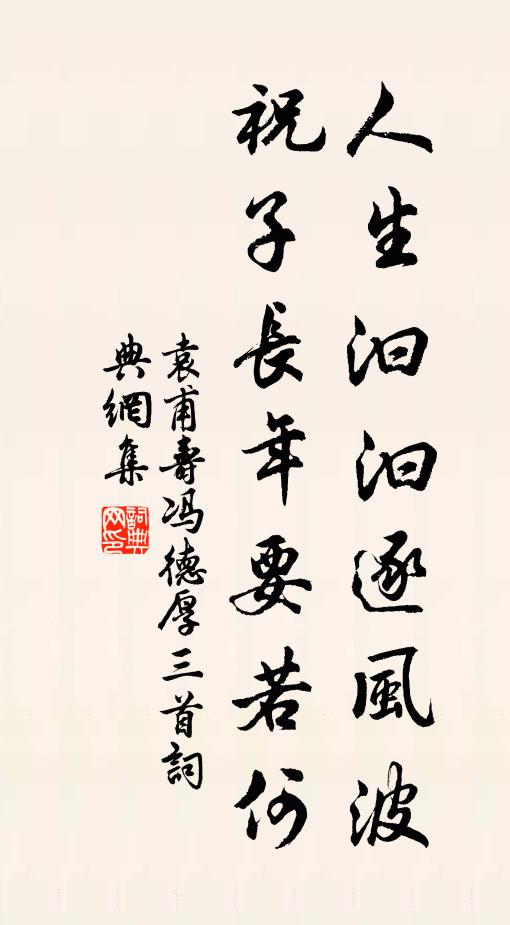 人生汩汩逐風波
祝子長年要若何
袁甫壽冯德厚三首詞
典網集
詞典网印